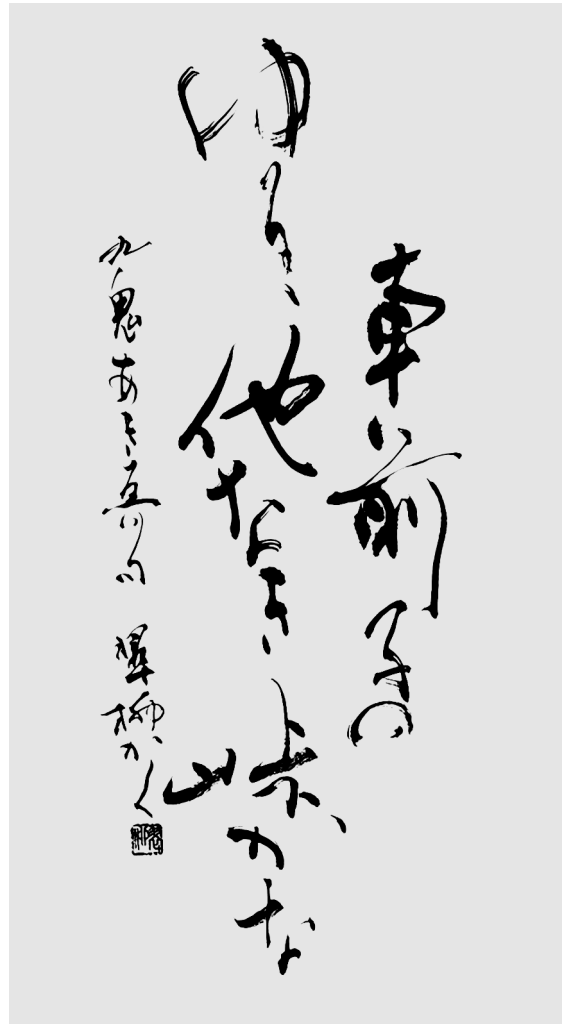 車前子の
ゆるゝ他なき峠かな
九鬼あきゑ 句 柳かく